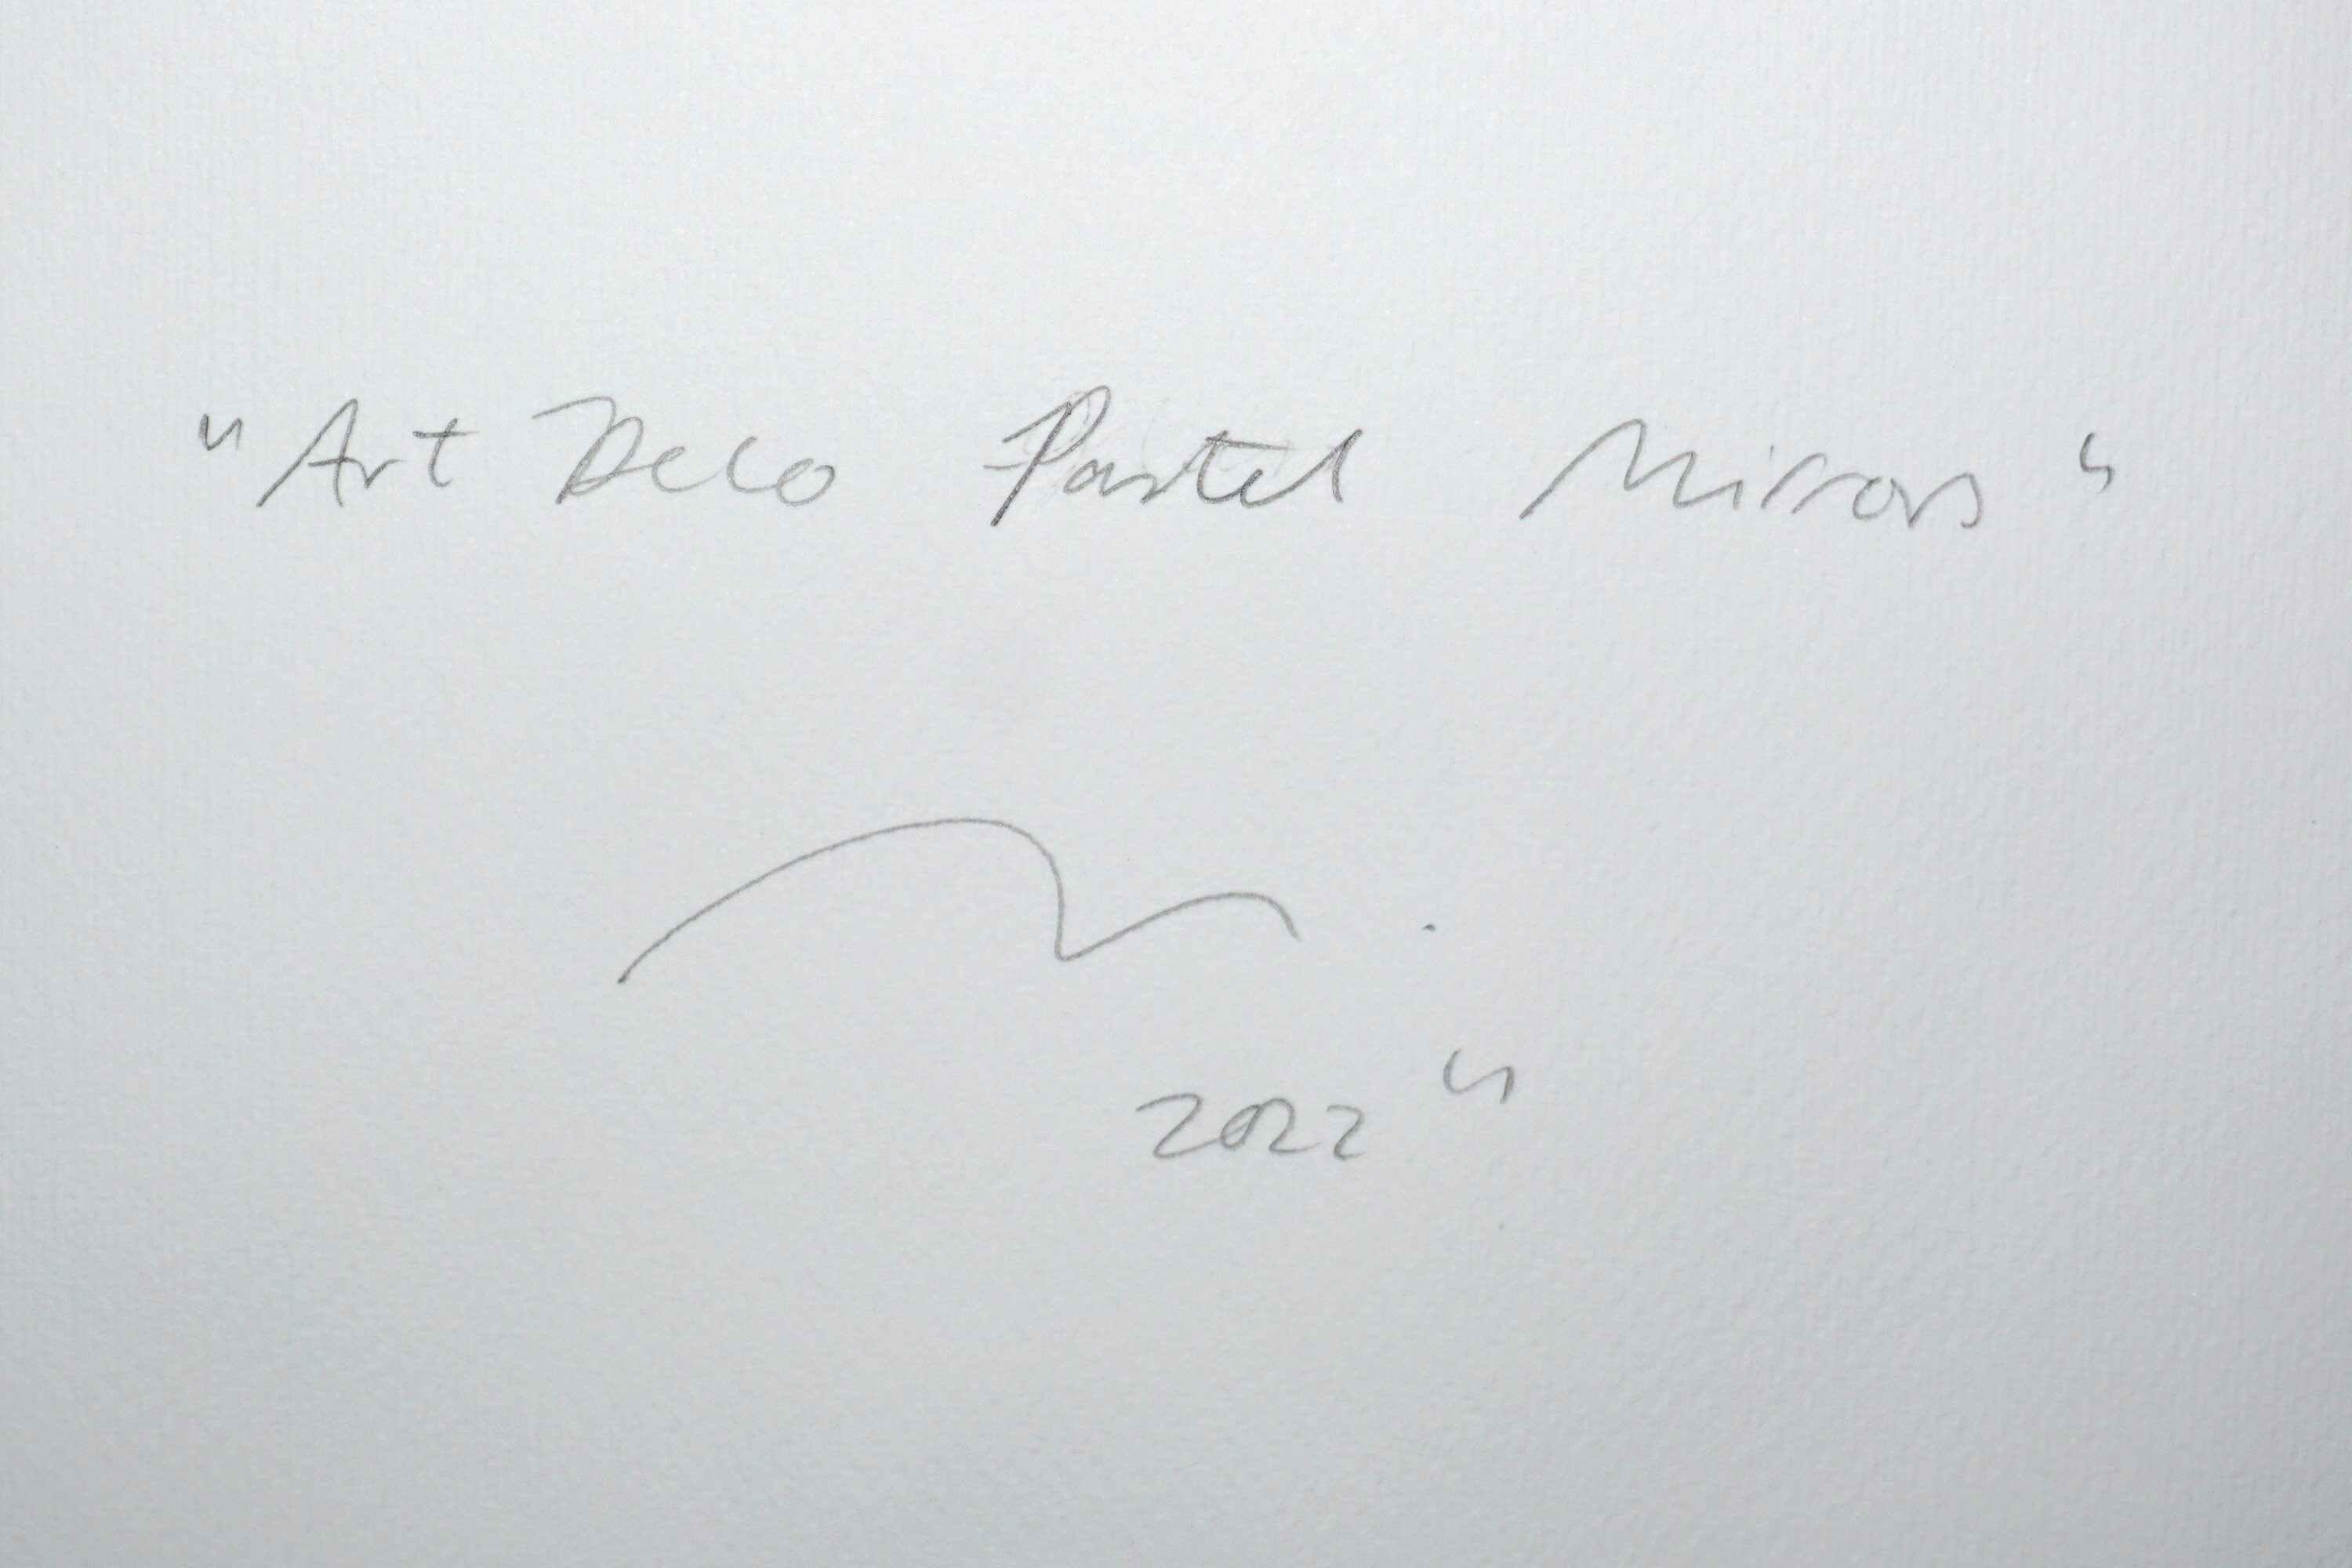 "Art Deco Pastel Mirrors"
2022"